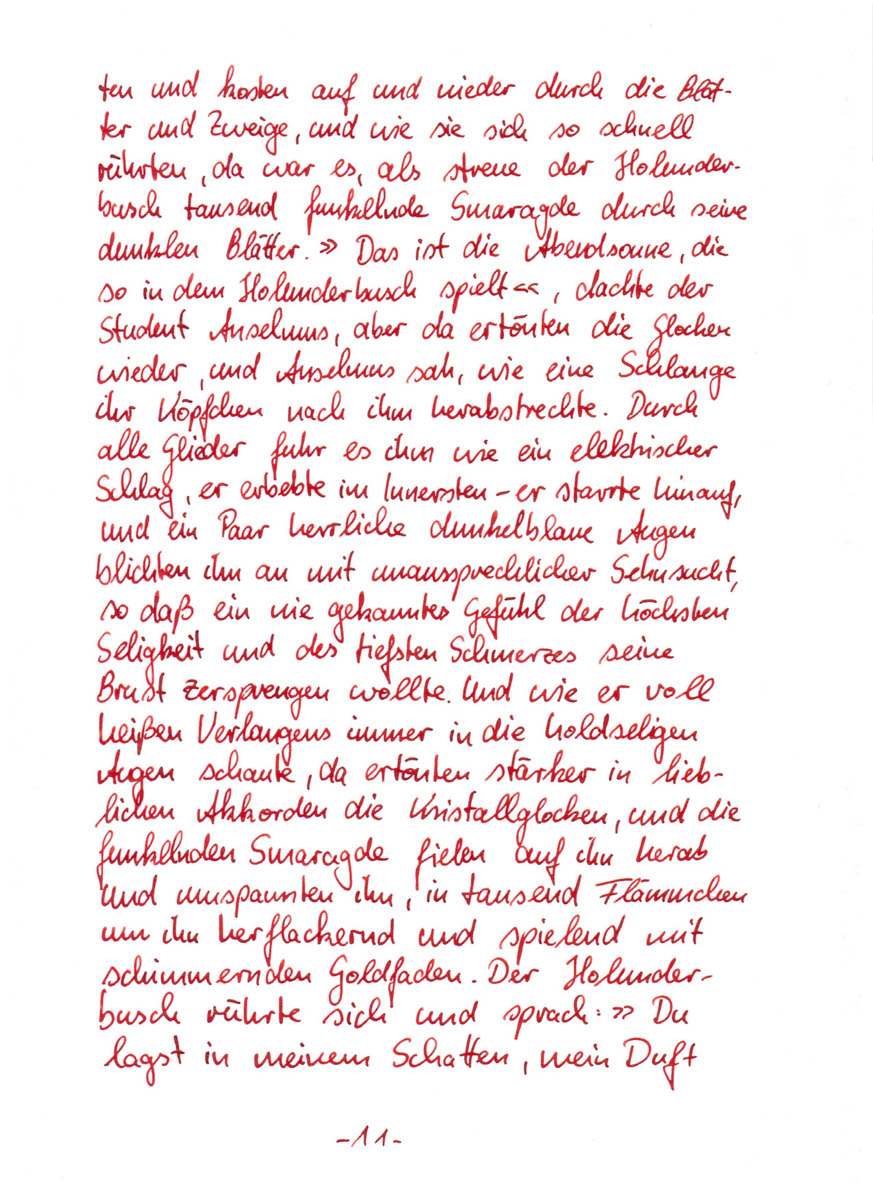 ten und kosten auf und nieder durch die Blät-
ter und Zweige, und wie sie sich so schnell
rührten, da war es, als streue der Holunder-
busch tausend funkelnde Smaragde durch seine
dunklen Blätter. » Das ist die Abendsonne, die
so in dem Holunderbusch spielt «, dachte der
Student Anselmus, aber da ertönten die Glocken
wieder, und Anselmus sah, wie eine Schlange
ihr Köpfchen nach ihm herabstreckte. Durch
alle Glieder fuhr es ihm wie ein elektrischer
Schlag, er erbebte im Innersten – er starrte hinauf,
und ein Paar herrliche dunkelblaue Augen
blickten ihn an mit unaussprechlicher Sehnsucht,
so daß ein nie gekanntes Gefühl der höchsten
Seligkeit und des tiefsten Schmerzes seine
Brust zersprengen wollte. Und wie er voll
heißen Verlangens immer in die holdseligen
Augen schaute, da ertönten stärker in lieb-
lichen Akkorden die Kristallglocken, und die
funkelnden Smaragde fielen auf ihn herab
und umspannten ihn, in tausend Flämmchen
um ihn herflackernd und spielend mit
schimmernden Goldfaden. Der Holunder-
busch rührte sich und sprach: » Du
lagst in meinem Schatten, mein Duft
-11-